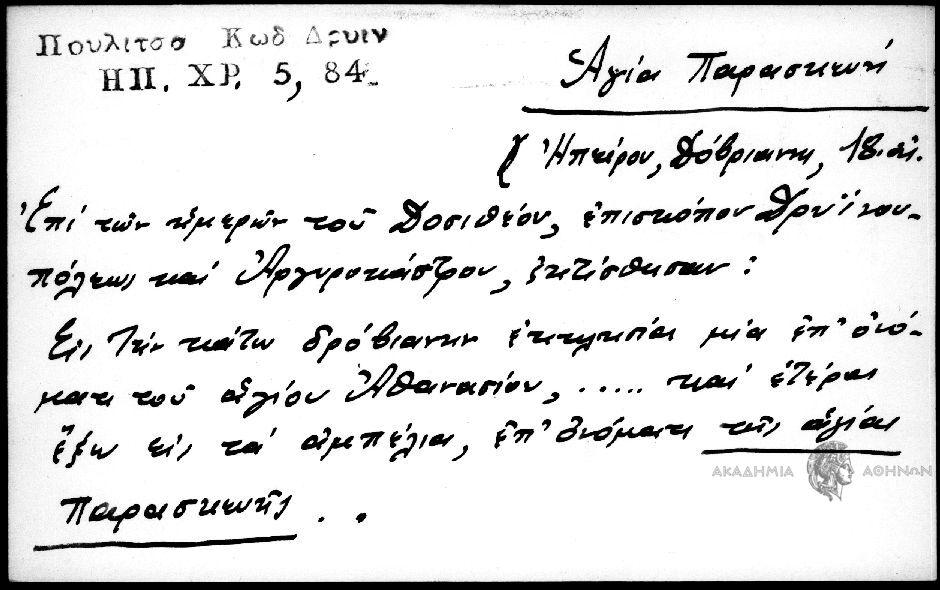 Πουλιτσα Κωδ Δρυιν
ΗΠ. ΧΡ. 5, 84
Ἁγία Παρασκευή
Ἠπείρου, Δόβριανη, 18. αἰ.
Ἐπί τῶν ἡμερῶν τοῦ Δοσιθέου, ἐπισκόπου Δρυϊνου-
πόλεως καί Ἀργυροκάστρου, ἐκτίσθησαν :
Εἰς τήν κάτω δρόβιανην ἐκκλησίαι μία ἐπ' ὀνό-
ματι τοῦ ἁγίου Ἀθανασίου, ..... καί ἑτέρα
ἔξω εἰς τά ἀμπέλια, ἐπ' ὀνόματι τῆς ἁγίας
ΑΚΑΔΗΜΙΑ ΑΘΗΝΩΝ
Παρασκευῆς . .